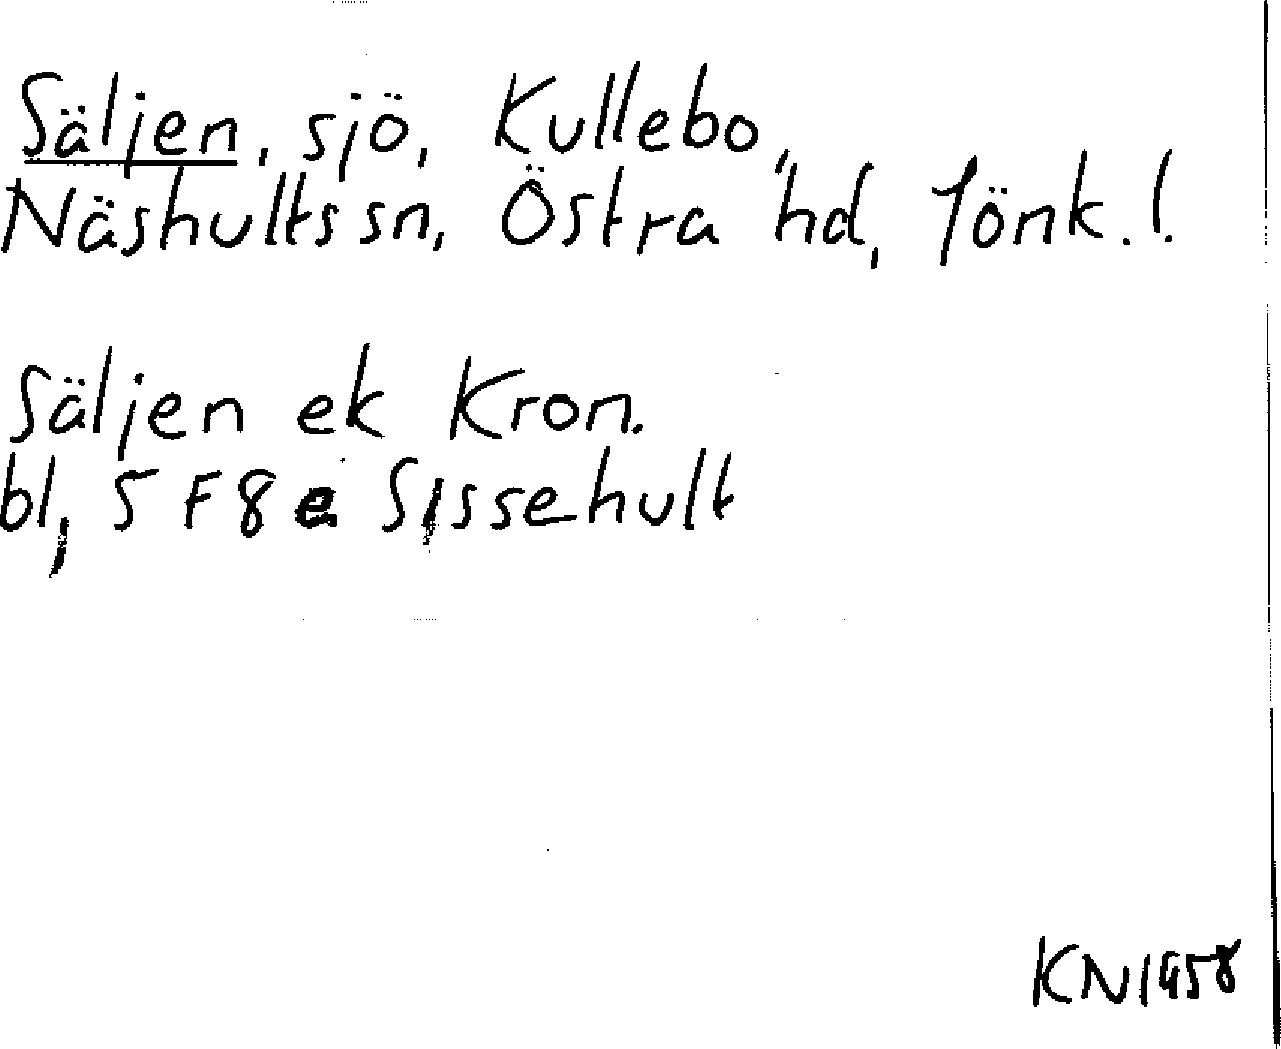 Säljen, sjö, Kullebo,
Näshults sn, Östra hd, Jönk. l.
Säljen ek Kron.
bl, 5 F 8 e Sissehult
KN 1958